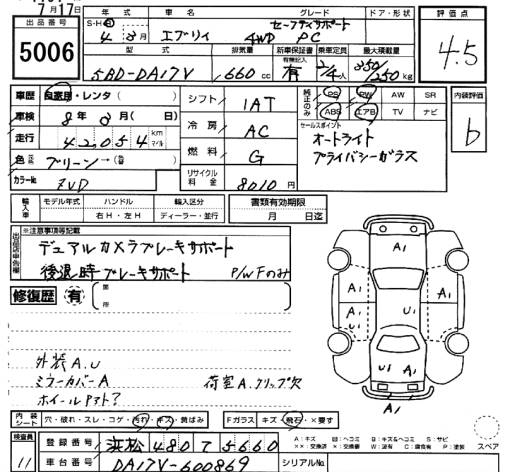 7月17日
年式 車名 グレード ドア・形状 評価点
出品番号 S・H セーフティサポート
5006 4年3月 エブリィ 4WD PC 4.5
型式 排気量 新車保証書 乗車定員 最大積載量
有 2/4人 350/250kg
5BD-DA17V 660cc
車歴 自家用・レンタ( ) シフト 1AT 純正のみ PS PW AW SR 内装評価
車検 8年3月( 日) ABS エアB TV ナビ
冷房 AC セールスポイント b
走行 42,054km オートライト
プライバシーガラス
色 グリーン→( ) 燃料 G
カラーNo ZVD リサイクル料金 8010円
輸入車 モデル年式 ハンドル 輸入区分 書類有効期限
右H・左H ディーラー・並行 月 日迄
出品店申告欄 ※注意事項等記載
デュアルカメラブレーキサポート
後退時ブレーキサポート P/WFのみ
修復歴 有 箇所
外装A.U
ミラーカバーA 荷室A.クリップ欠
ホイールPアト?
A1
A1 A1 U A1
U1 A1
A1
内装シート 穴・破れ・スレ・コゲ・汚れ・キズ・黄ばみ Fガラス キズ・飛石・×要す
検査員 11 登録番号 浜松480て5660
車台番号 DA17V-600869 シリアルNo.
スペア